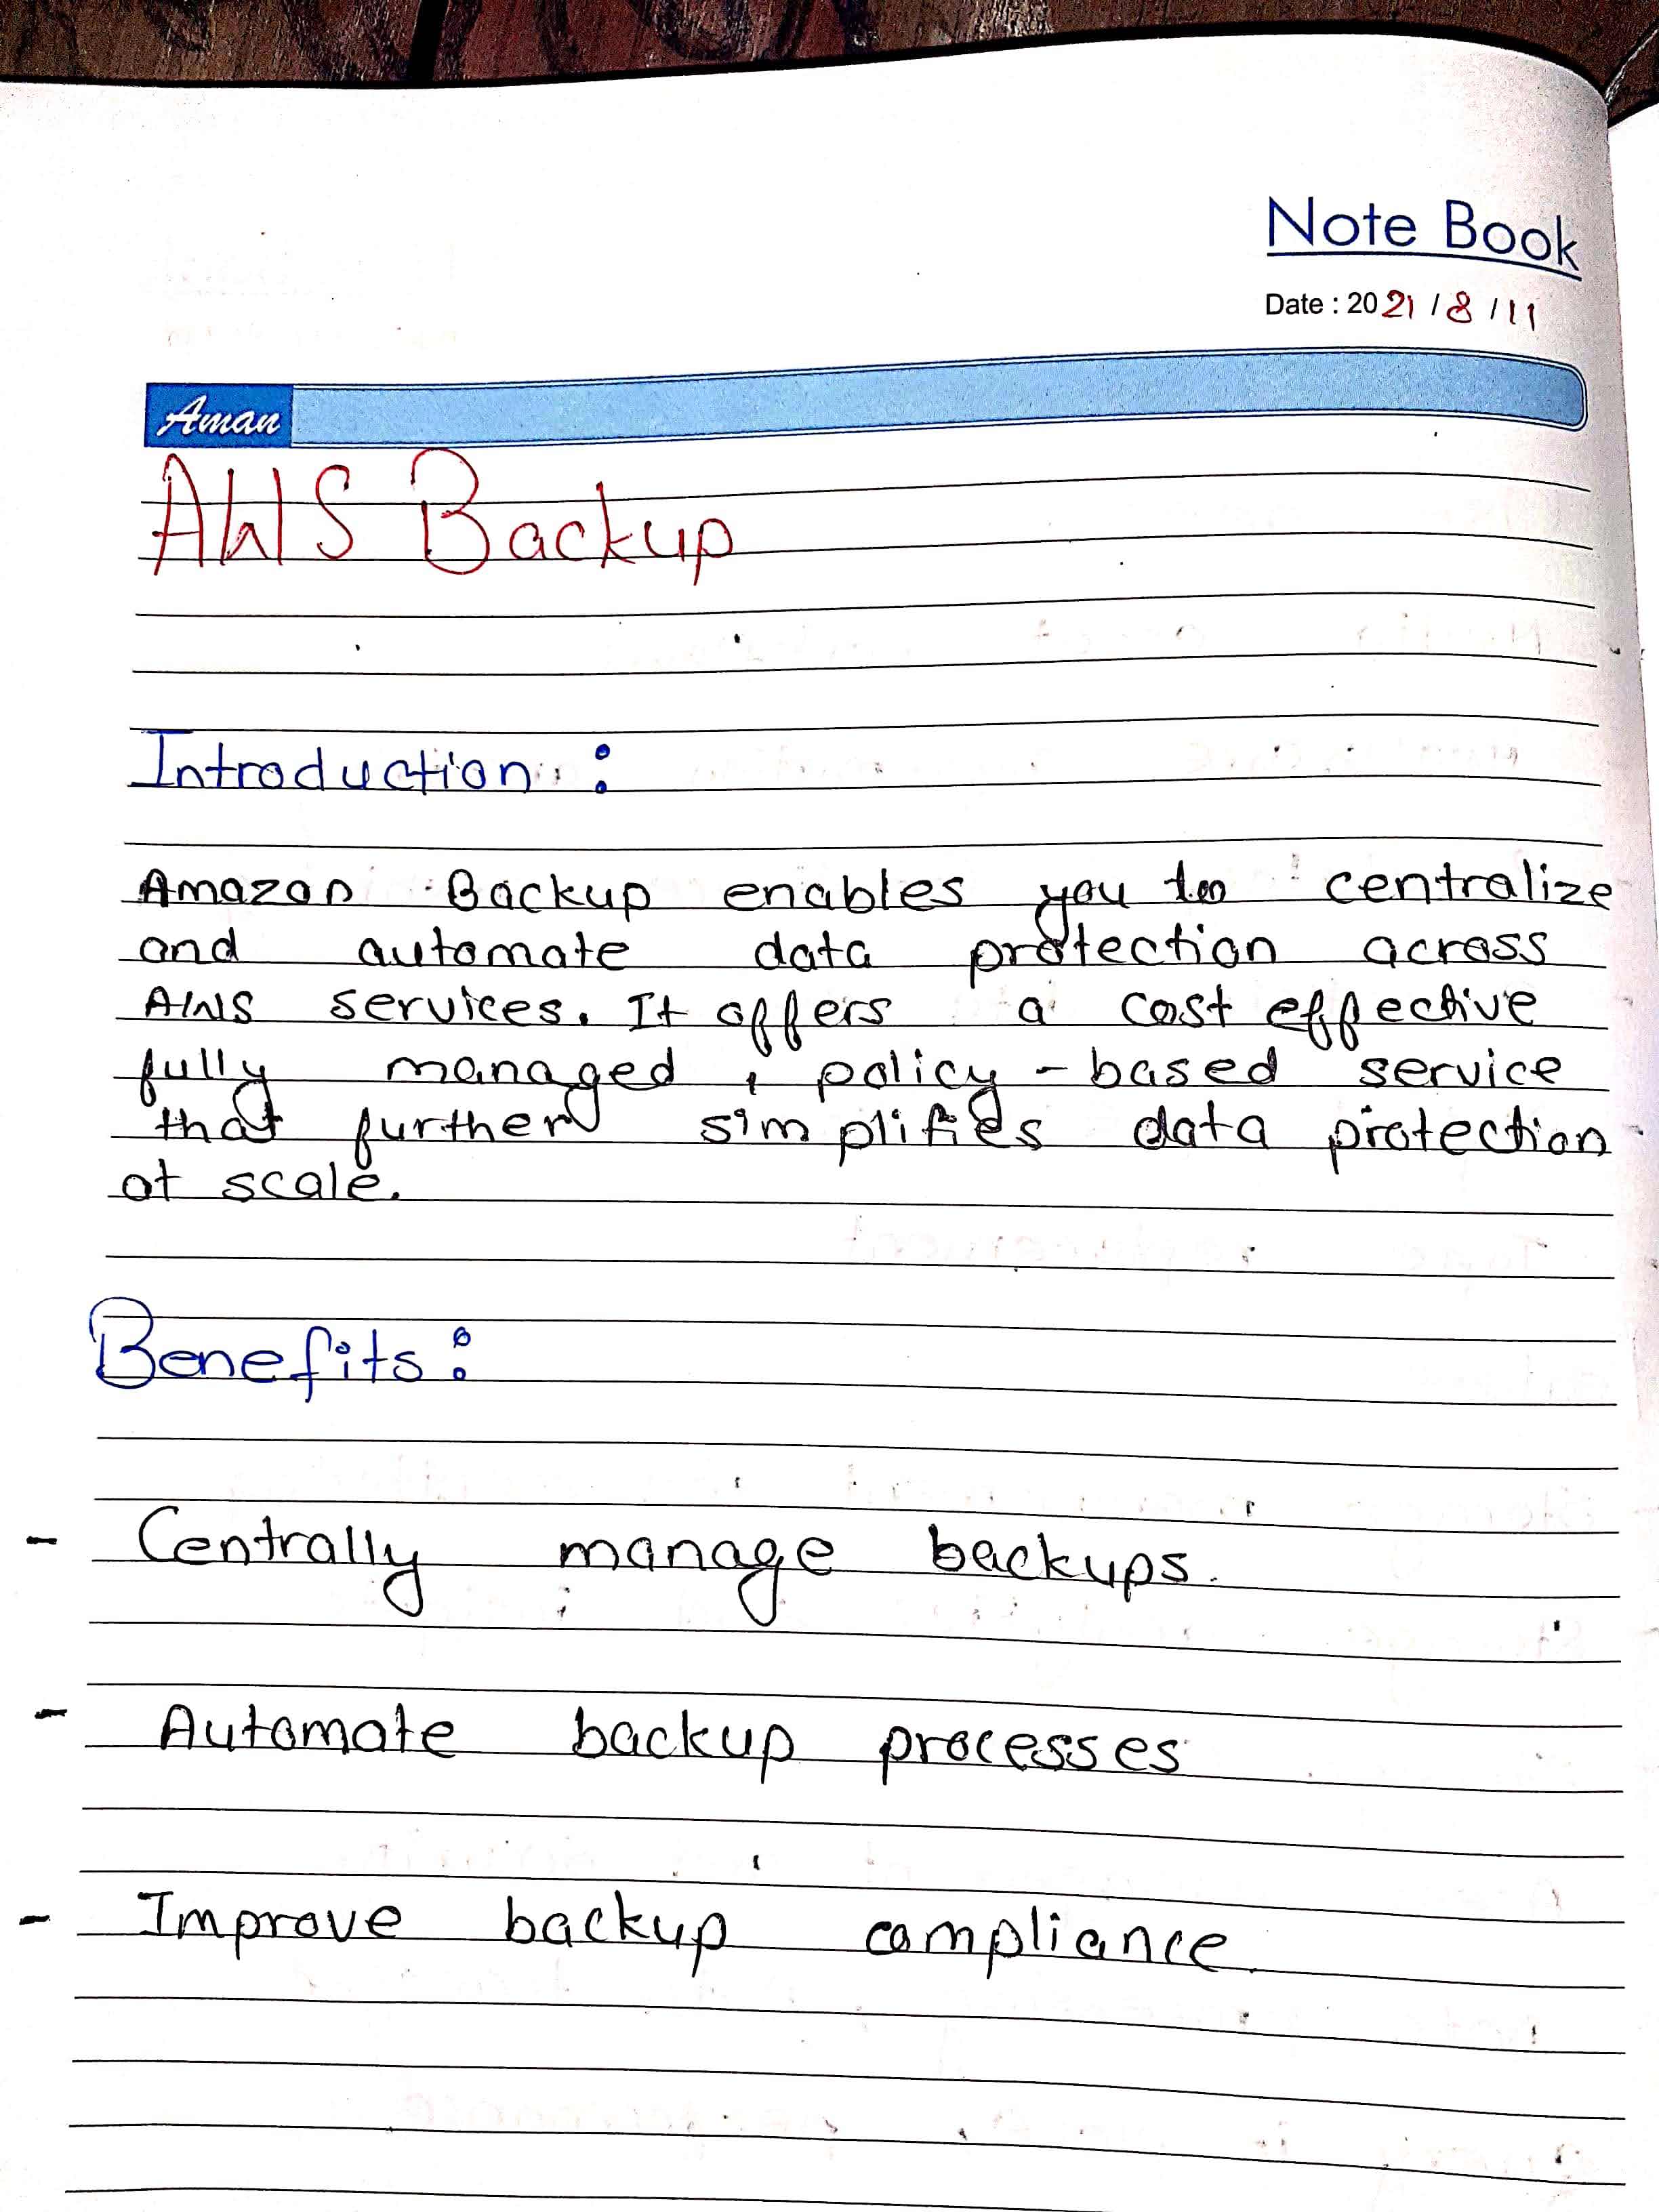 Note Book
Date : 2021 / 8 / 11
Aman
AWS Backup
Introduction :
Amazon Backup enables you to centralize
and automate data protection across
AWS services. It offers a cost effective
fully managed , policy - based service
that further simplifies data protection
at scale.
Benefits :
- Centrally manage backups.
- Automate backup processes
- Improve backup compliance.